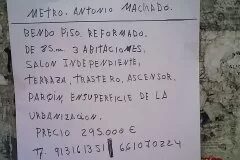 METRO. ANTONIO MACHADO.
BENDO PISO REFORMADO.
DE 85m 3 ABITACIONES,
SALON INDEPENDIENTE,
TERRAZA, TRASTERO, ASCENSOR,
PARQIN ENSUPERFICIE DE LA
URBANIZACION.
PRECIO 295000 €
T. 913161331 661070224